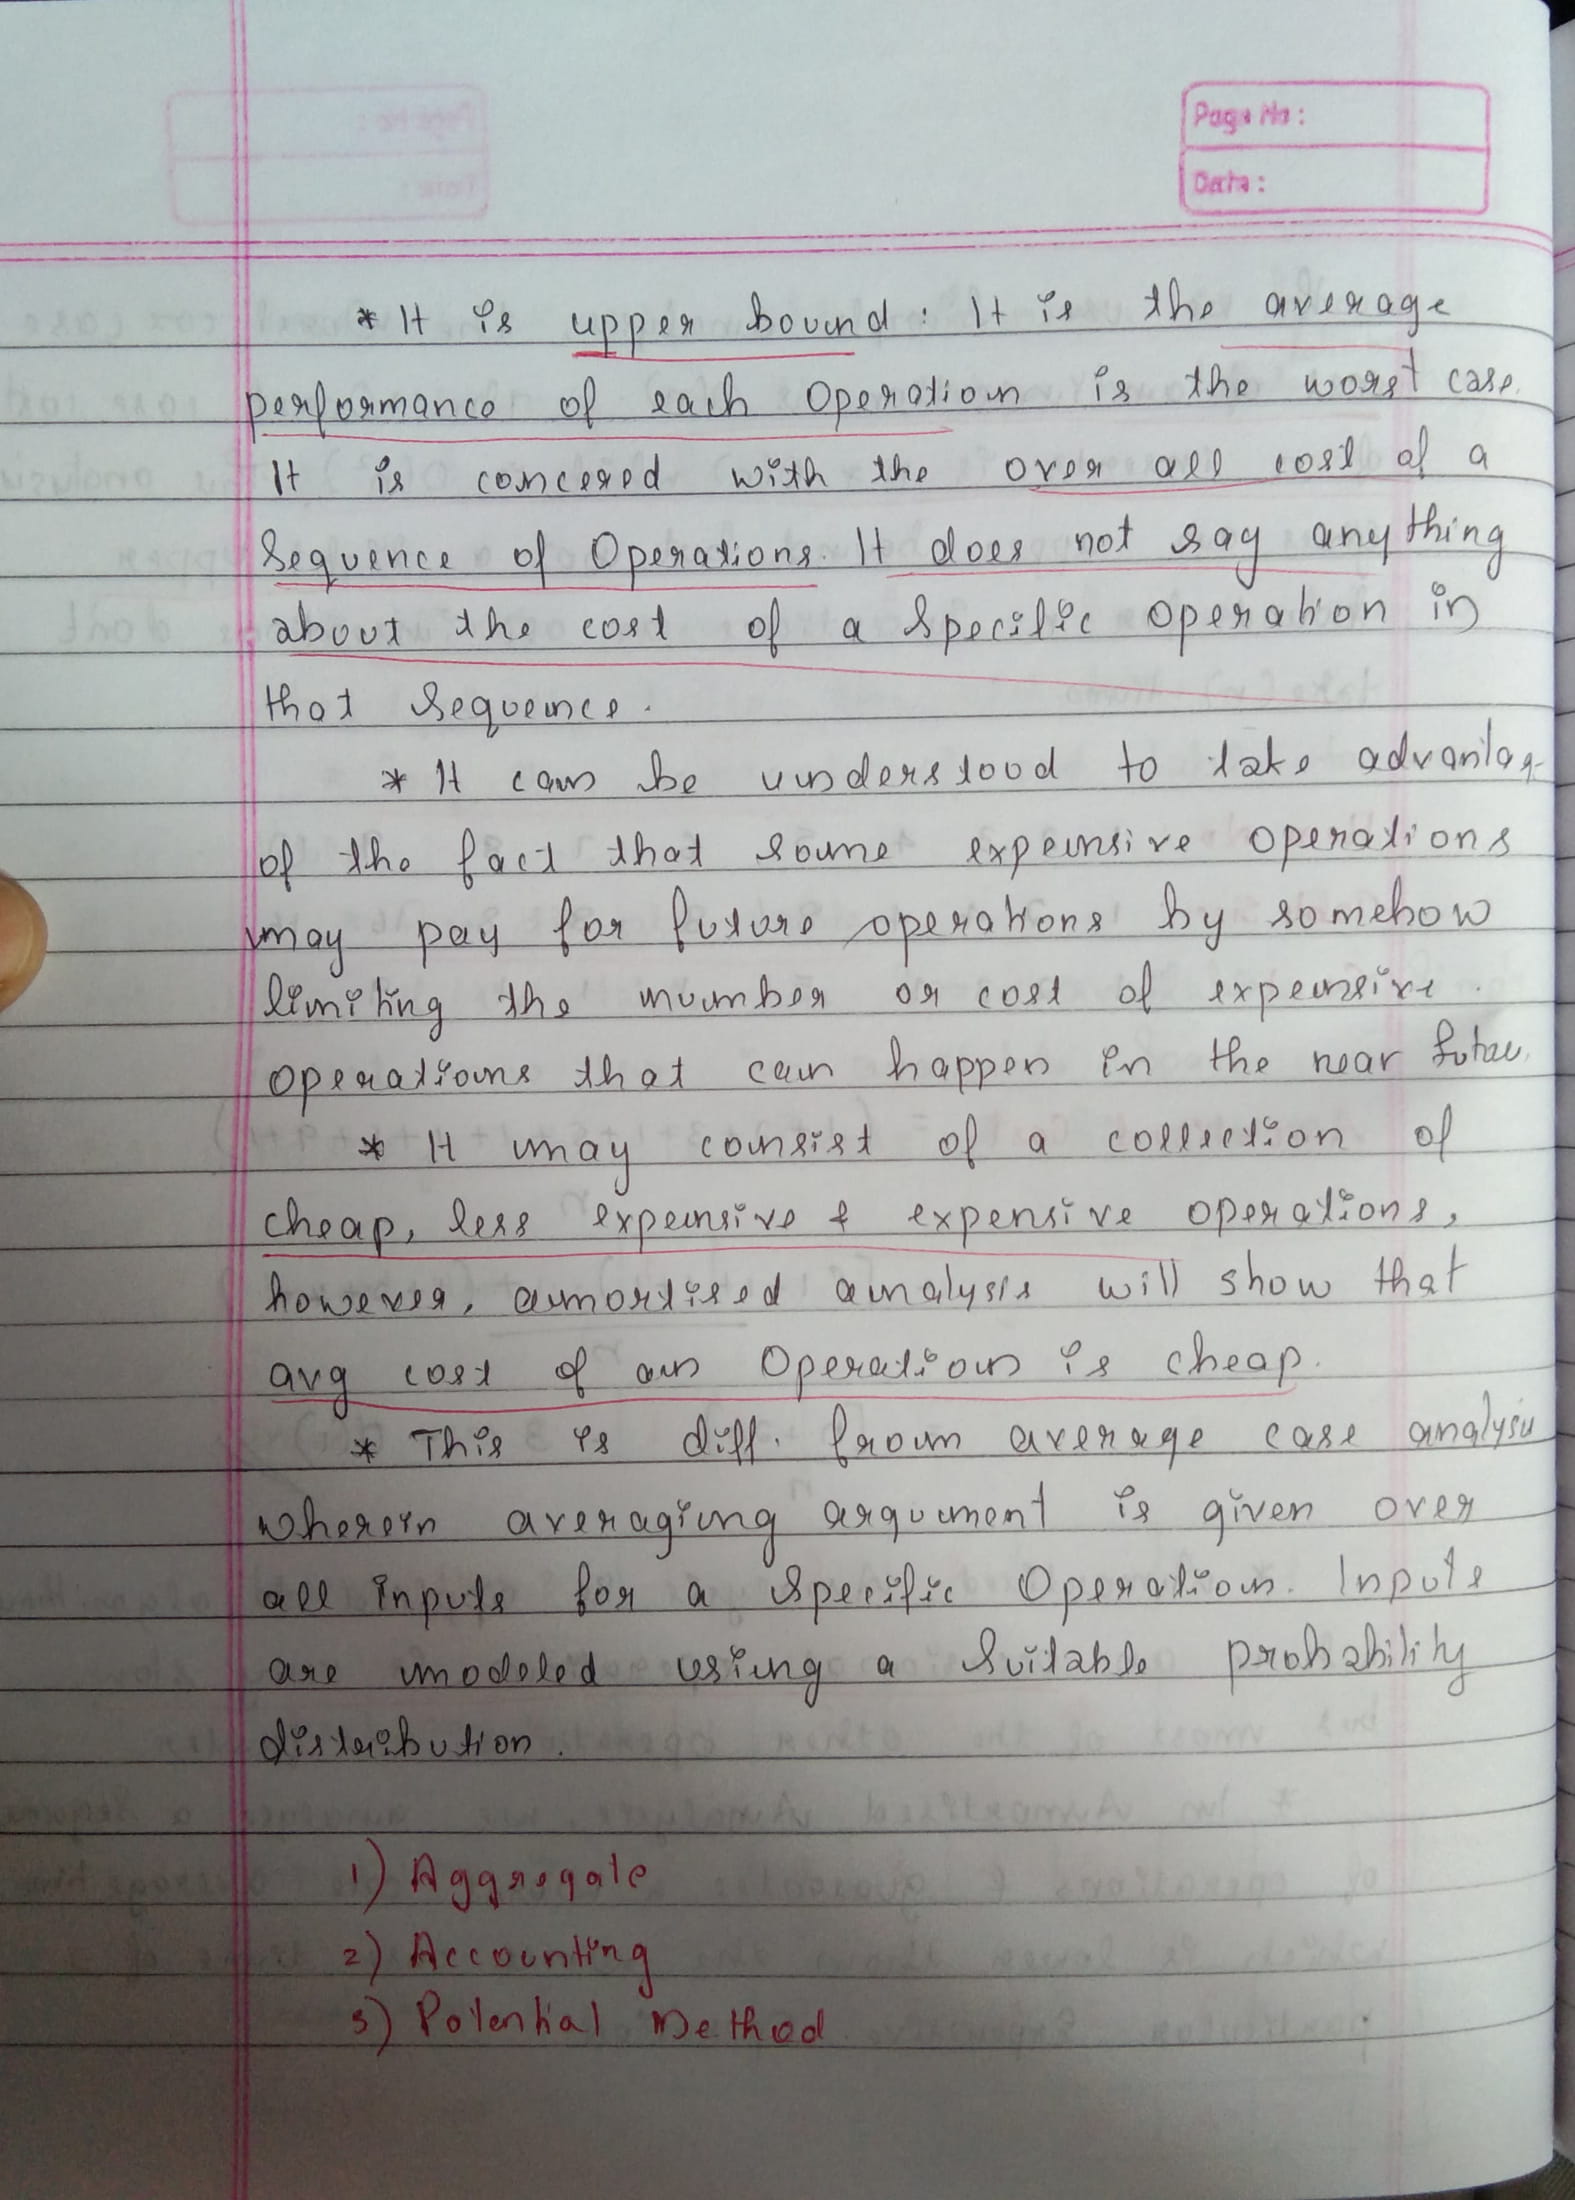 Page No :
Date :
* It is upper bound : It is the average
performance of each Operation is the worst case.
It is concered with the over all cost of a
Sequence of Operations. It does not say any thing
about the cost of a Specific operation in
that Sequence.
* It can be understood to take advantag
of the fact that some expensive operations
may pay for future operations by somehow
limiting the number or cost of expensive
operations that can happen in the near future.
* It may consist of a collection of
cheap, less expensive & expensive operations,
however, amortised analysis will show that
avg cost of an Operation is cheap.
* This is diff. from average case analysis
wherein averaging argument is given over
all inputs for a Specific Operation. Inputs
are modeled using a Suitable probability
distribution.
1) Aggregate
2) Accounting
3) Potential Method